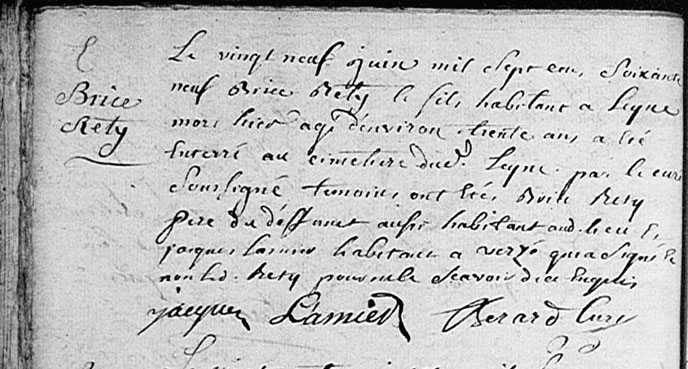 E
Brice
Rety
Le vingt neuf juin mil sept cens soixante
neuf Brice Rety le fils habitant a Leyne
mort hier agé d'environ trente ans a eté
Enterré au cimetiere dud. Leyne par le curé
Soussigné temoins ont étés Brice Rety
pere du deffunct aussi habitant aud. lieu Et
jacques Lamier habitant a verzé qui a signé Et
non led. Rety pour ne le scavoir de ce Enquis
jacques Lamier Berard Curé